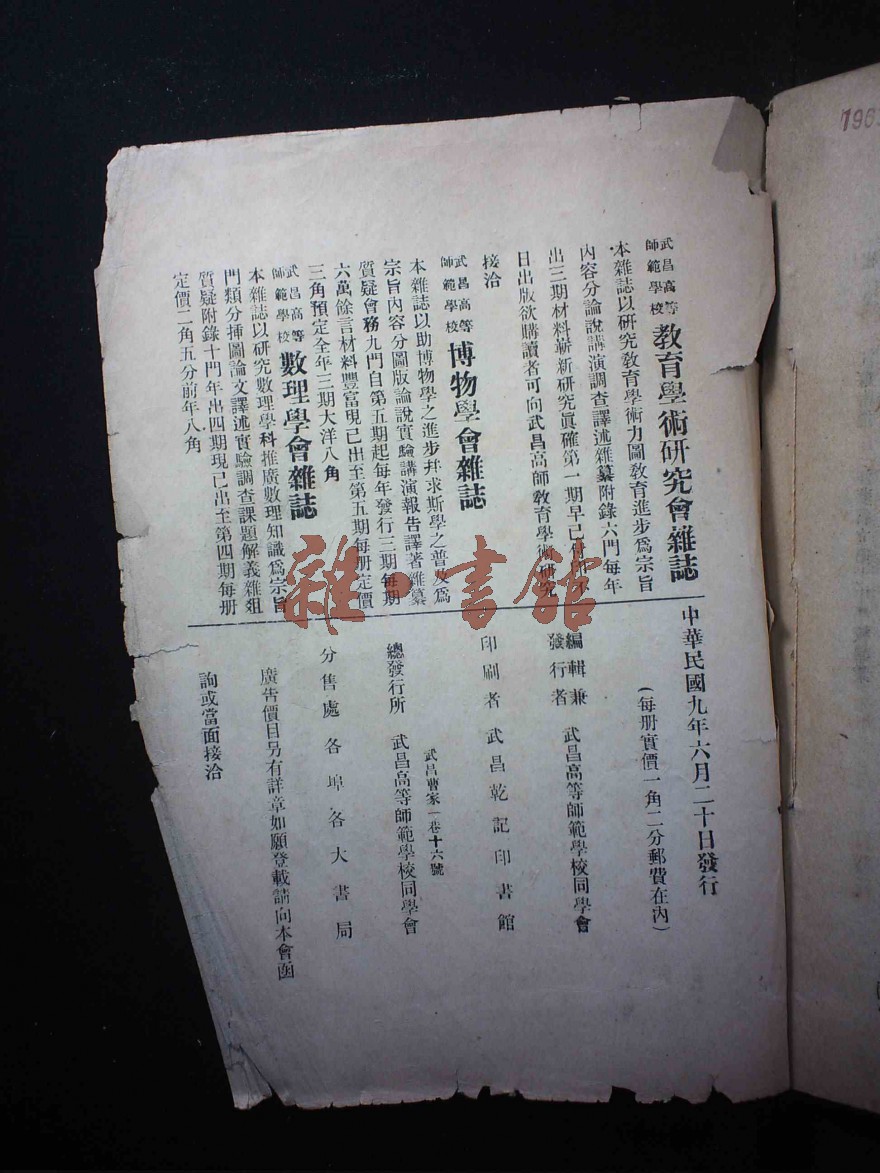 武昌高等
師範學校
教育學術研究會雜誌
本雜誌以研究教育學術力圖教育進步爲宗旨
內容分論說講演調查譯述雜纂附錄六門每年
出三期材料嶄新研究眞確第一期早已
日出版欲購讀者可向武昌高師教育學術研究
接洽
武昌高等
師範學校
博物學會雜誌
本雜誌以助博物學之進步幷求斯學之普及爲
宗旨內容分圖版論說實驗講演報告譯著雜纂
質疑會務九門自第五期起每年發行三期每期
六萬餘言材料豐富現已出至第五期每册定價
三角預定全年三期大洋八角
武昌高等
師範學校
數理學會雜誌
本雜誌以研究數理學科推廣數理知識爲宗旨
門類分揷圖論文譯述實驗調查課題解義雜俎
質疑附錄十門年出四期現已出至第四期每册
定價二角五分前年八角
中華民國九年六月二十日發行
(每册實價一角二分郵費在內)
編輯兼
發行者
武昌高等師範學校同學會
印刷者 武昌乾記印書館
武昌曹家一巷十六號
總發行所 武昌高等師範學校同學會
分售處 各埠各大書局
廣告價目另有詳章如願登載請向本會函
詢或當面接洽
雜·書館
196